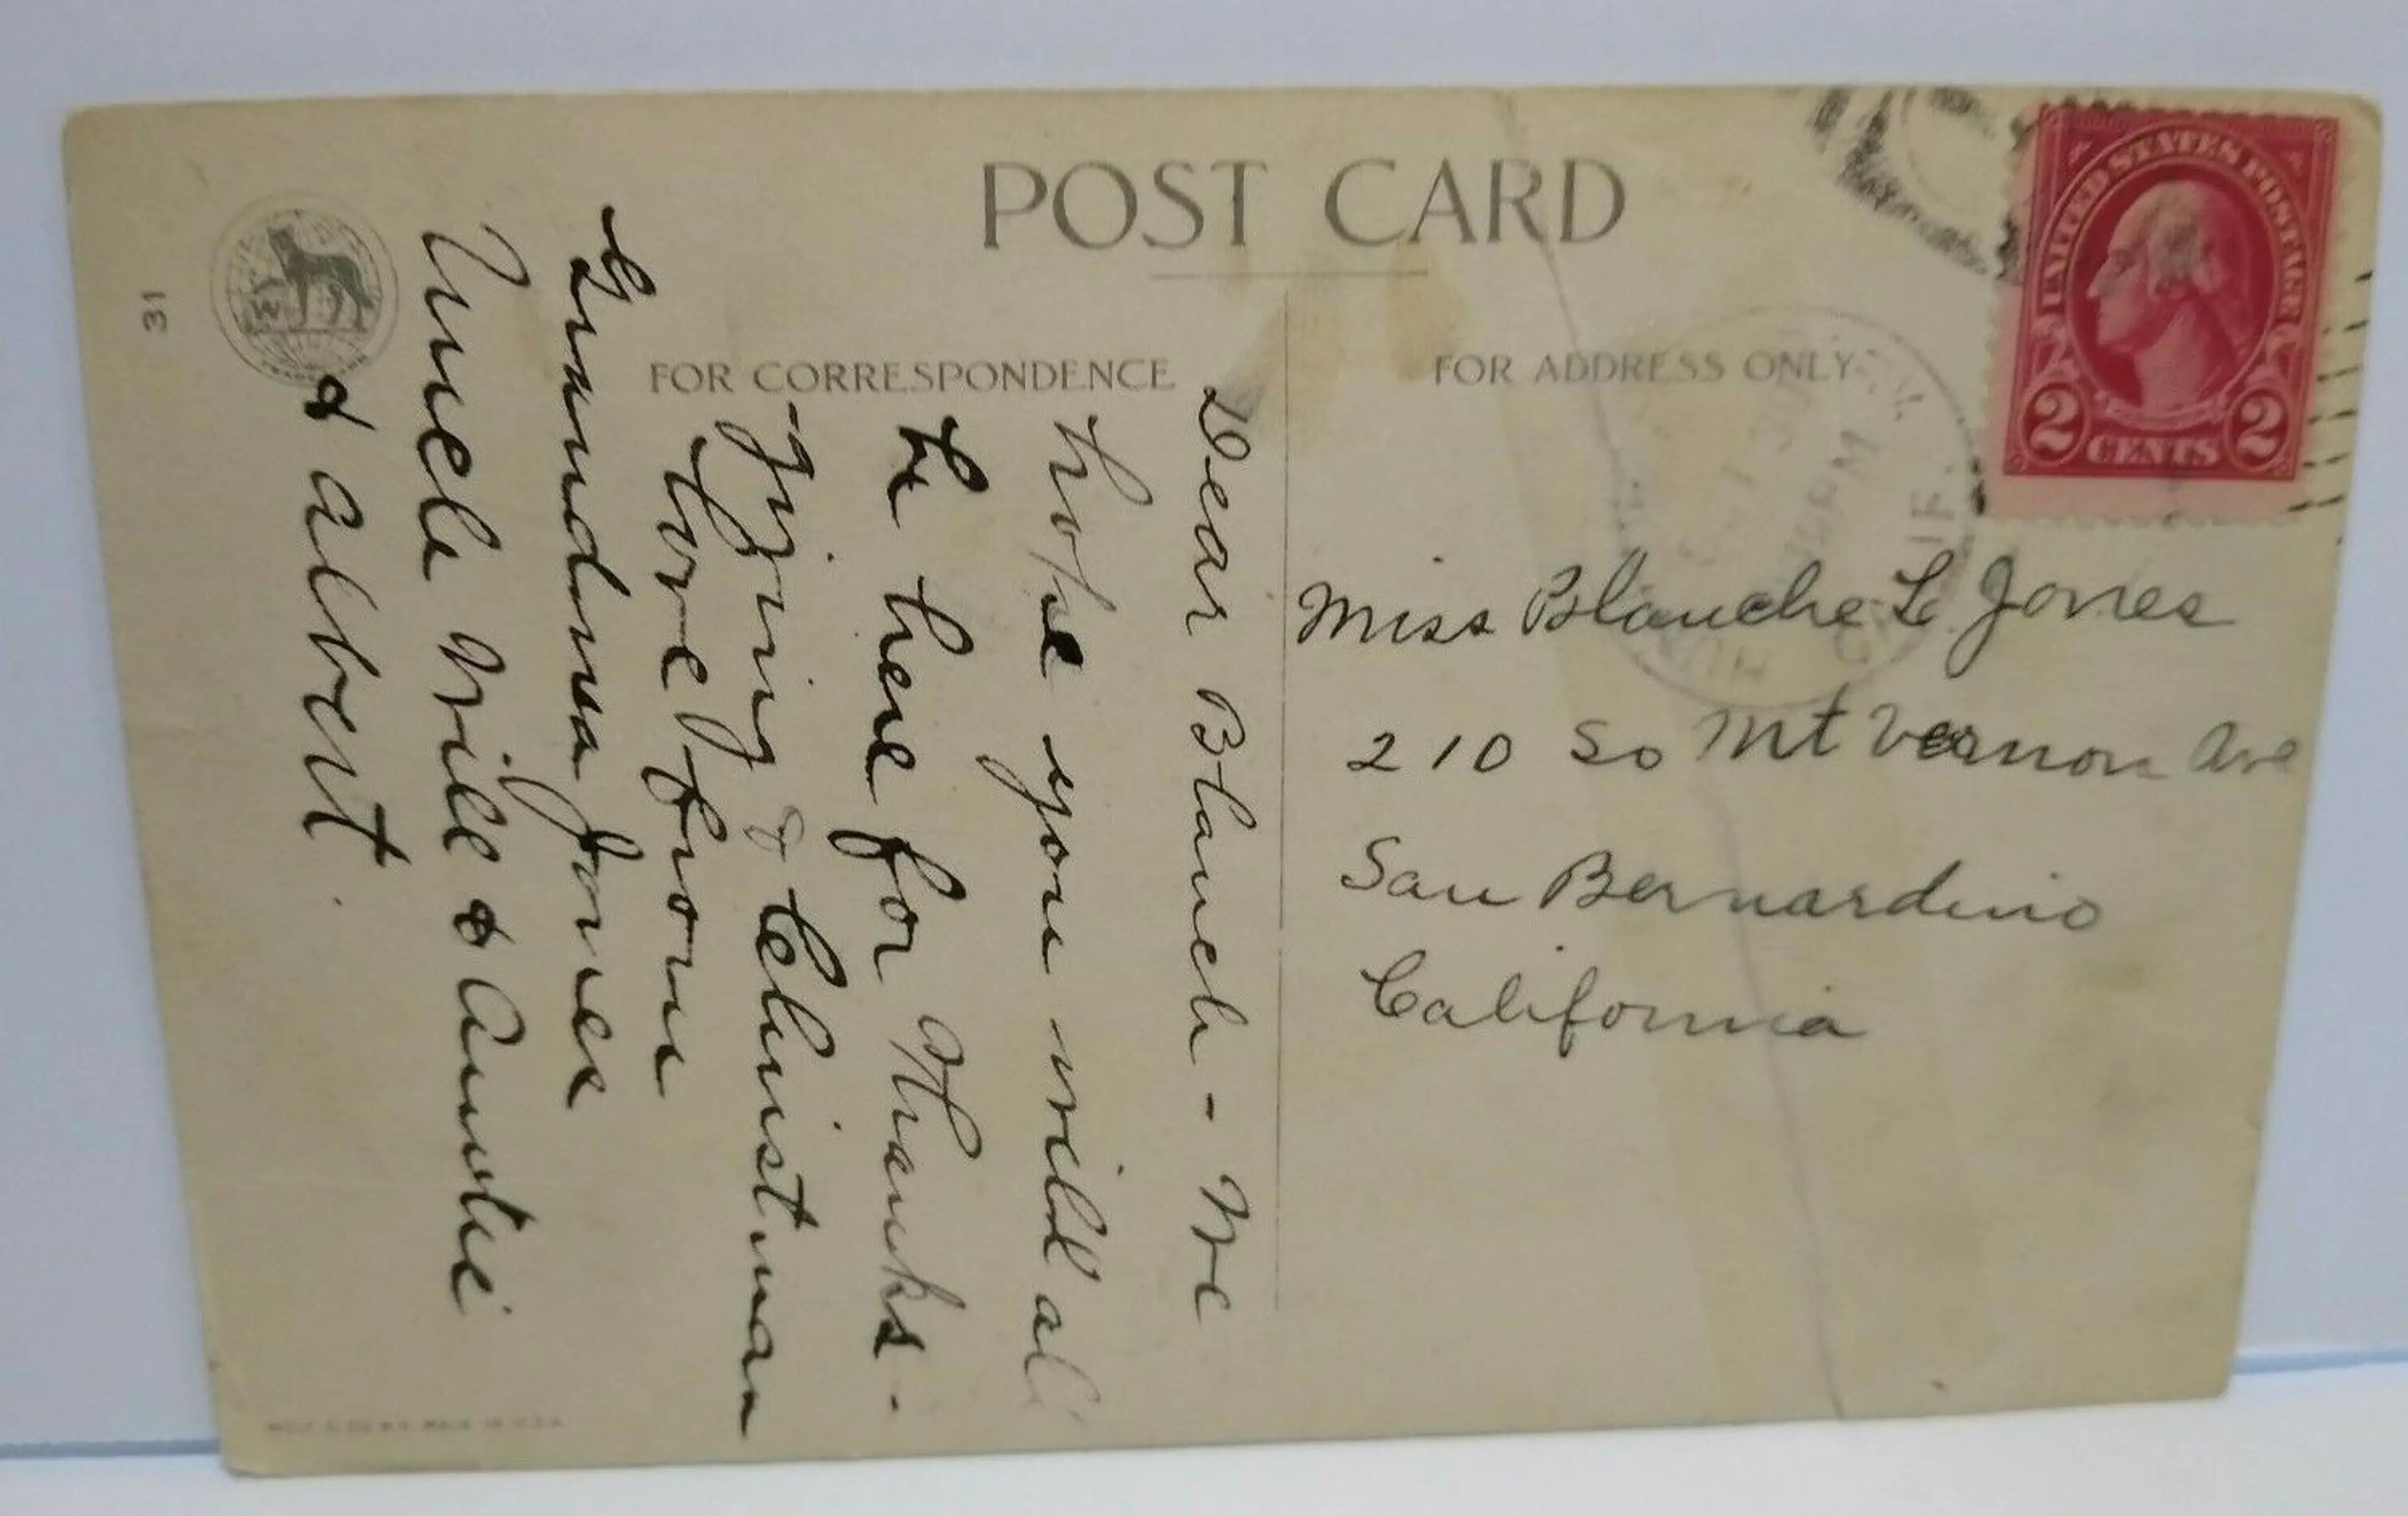 POST CARD
FOR CORRESPONDENCE
FOR ADDRESS ONLY
UNITED STATES POSTAGE
2 CENTS 2
31
W
TRADE MARK
10 PM
CALIF.
Miss Blanche L Jones
210 So Mt Vernon Ave
San Bernardino
California
Dear Blanch - We
hope you will al
be here for Thanks-
-giving & Christman
Love from
Grandma Jones
Uncle Will & Auntie
& Albert.
MADE IN U.S.A.